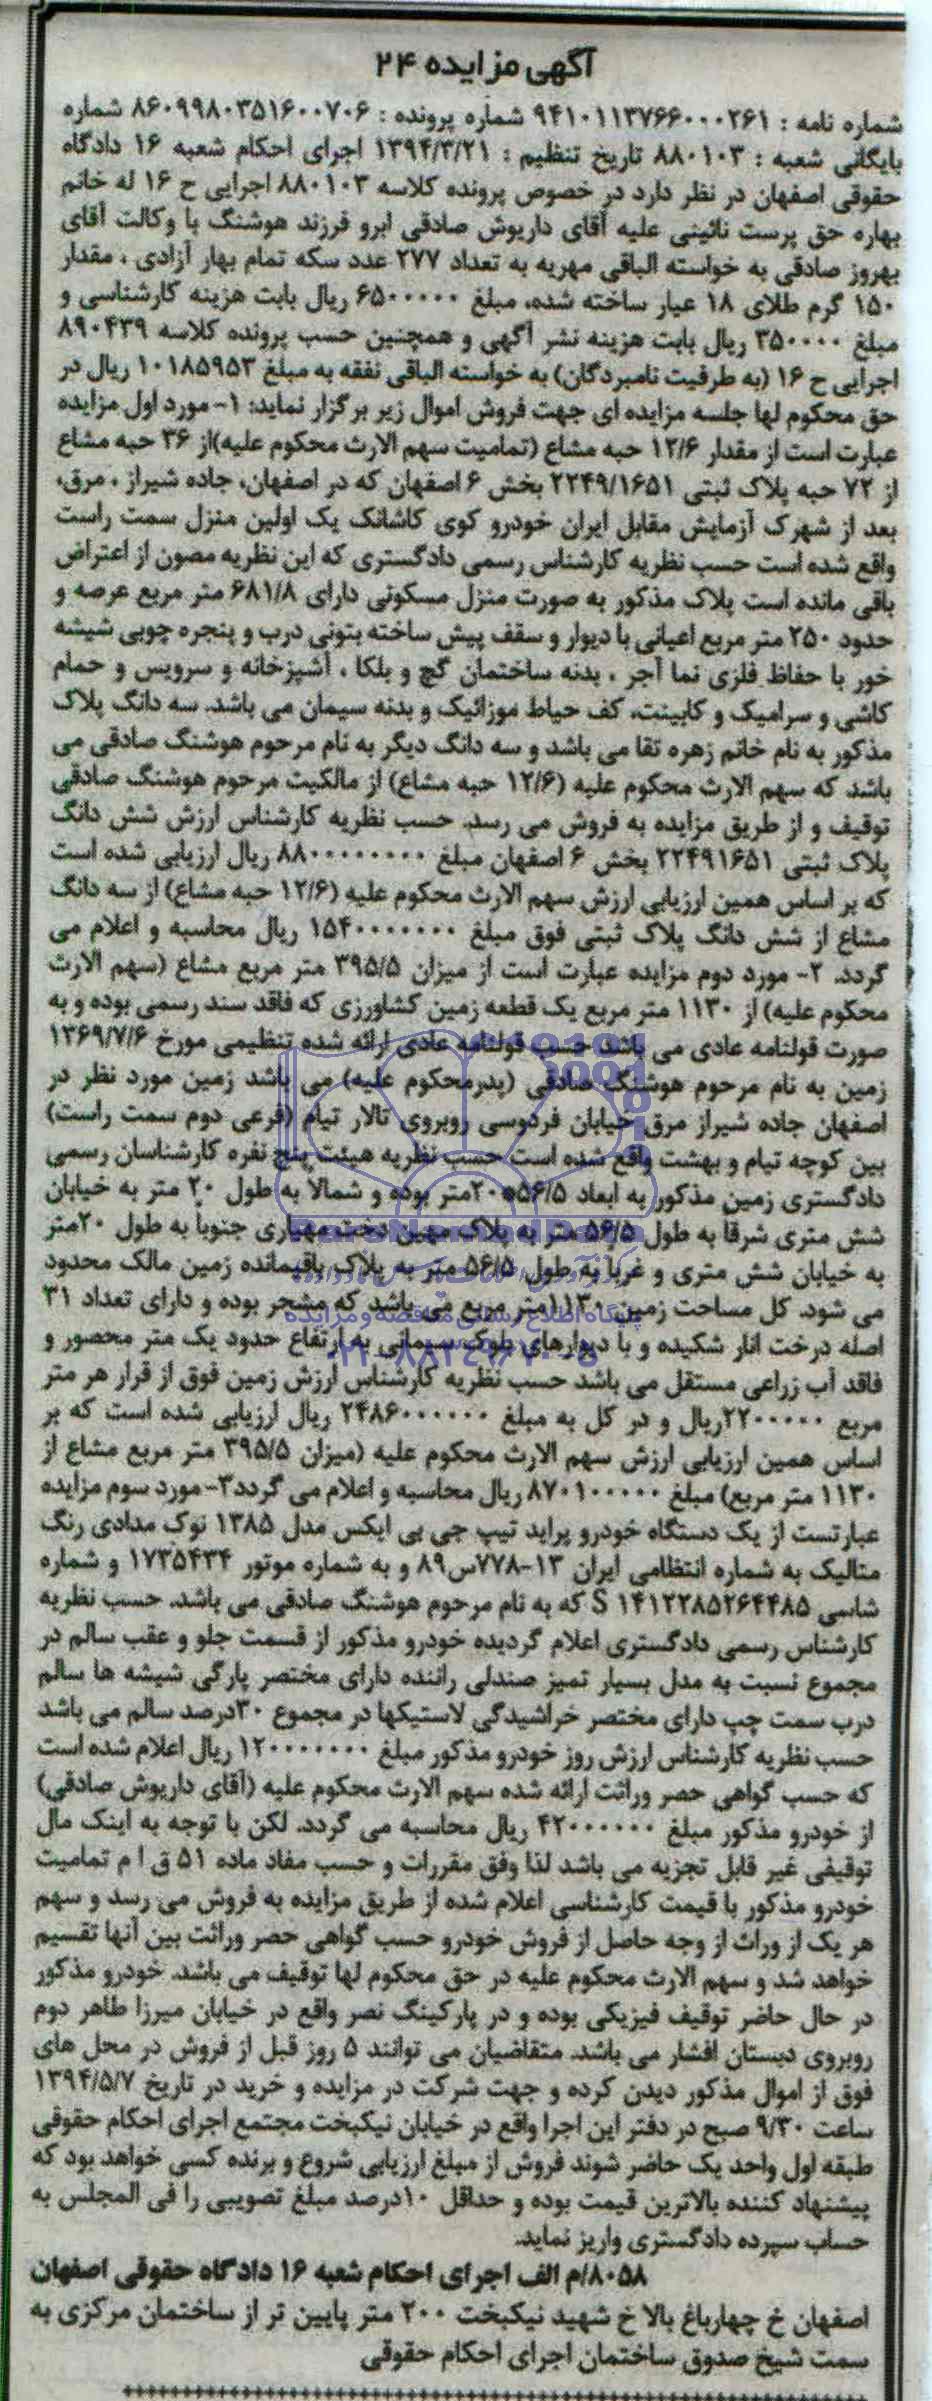 آگهی مزایده ۲۴
شماره نامه : ۹۴۱۰۱۱۳۷۶۶۰۰۰۲۶۱ شماره پرونده : ۸۶۰۹۹۸۰۳۵۱۶۰۰۷۰۶ شماره
بایگانی شعبه : ۸۸۰۱۰۳ تاریخ تنظیم : ۱۳۹۴/۳/۲۱ اجرای احکام شعبه ۱۶ دادگاه
حقوقی اصفهان در نظر دارد در خصوص پرونده کلاسه ۸۸۰۱۰۳ اجرایی ح ۱۶ له خانم
بهاره حق پرست نائینی علیه آقای داریوش صادقی ابرو فرزند هوشنگ با وکالت آقای
بهروز صادقی به خواسته الباقی مهریه به تعداد ۲۷۷ عدد سکه تمام بهار آزادی ، مقدار
۱۵۰ گرم طلای ۱۸ عیار ساخته شده، مبلغ ۶۵۰۰۰۰۰ ریال بابت هزینه کارشناسی و
مبلغ ۳۵۰۰۰۰ ریال بابت هزینه نشر آگهی و همچنین حسب پرونده کلاسه ۸۹۰۴۳۹
اجرایی ح ۱۶ (به طرفیت نامبردگان) به خواسته الباقی نفقه به مبلغ ۱۰۱۸۵۹۵۳ ریال در
حق محکوم لها جلسه مزایده ای جهت فروش اموال زیر برگزار نماید: ۱- مورد اول مزایده
عبارت است از مقدار ۱۲/۶ حبه مشاع (تمامیت سهم الارث محکوم علیه)از ۳۶ حبه مشاع
از ۷۲ حبه پلاک ثبتی ۲۲۴۹/۱۶۵۱ بخش ۶ اصفهان که در اصفهان، جاده شیراز ، مرق،
بعد از شهرک آزمایش مقابل ایران خودرو کوی کاشانک یک اولین منزل سمت راست
واقع شده است حسب نظریه کارشناس رسمی دادگستری که این نظریه مصون از اعتراض
باقی مانده است پلاک مذکور به صورت منزل مسکونی دارای ۶۸۱/۸ متر مربع عرصه و
حدود ۲۵۰ متر مربع اعیانی با دیوار و سقف پیش ساخته بتونی درب و پنجره چوبی شیشه
خور با حفاظ فلزی نما آجر ، بدنه ساختمان گچ و بلکا ، آشپزخانه و سرویس و حمام
کاشی و سرامیک و کابینت، کف حیاط موزائیک و بدنه سیمان می باشد. سه دانگ پلاک
مذکور به نام خانم زهره تقا می باشد و سه دانگ دیگر به نام مرحوم هوشنگ صادقی می
باشد که سهم الارث محکوم علیه (۱۲/۶ حبه مشاع) از مالکیت مرحوم هوشنگ صادقی
توقیف و از طریق مزایده به فروش می رسد. حسب نظریه کارشناس ارزش شش دانگ
پلاک ثبتی ۲۲۴۹۱۶۵۱ بخش ۶ اصفهان مبلغ ۸۸۰۰۰۰۰۰۰۰ ریال ارزیابی شده است
که بر اساس همین ارزیابی ارزش سهم الارث محکوم علیه (۱۲/۶ حبه مشاع) از سه دانگ
مشاع از شش دانگ پلاک ثبتی فوق مبلغ ۱۵۴۰۰۰۰۰۰۰ ریال محاسبه و اعلام می
گردد. ۲- مورد دوم مزایده عبارت است از میزان ۳۹۵/۵ متر مربع مشاع (سهم الارث
محکوم علیه) از ۱۱۳۰ متر مربع یک قطعه زمین کشاورزی که فاقد سند رسمی بوده و به
صورت قولنامه عادی می باشد حسب قولنامه عادی ارائه شده تنظیمی مورخ ۱۳۶۹/۷/۶
زمین به نام مرحوم هوشنگ صادقی (پدرمحکوم علیه) می باشد زمین مورد نظر در
اصفهان جاده شیراز مرق خیابان فردوسی روبروی تالار تیام (فرعی دوم سمت راست)
بین کوچه تیام و بهشت واقع شده است حسب نظریه هیئت پنج نفره کارشناسان رسمی
دادگستری زمین مذکور به ابعاد ۵۶/۵*۲۰متر بوده و شمالا به طول ۲۰ متر به خیابان
شش متری شرقاً به طول ۵۶/۵ متر به پلاک مهین دخت مهیاری جنوباً به طول ۲۰متر
به خیابان شش متری و غرباً به طول ۵۶/۵ متر به پلاک باقیمانده زمین مالک محدود
می شود. کل مساحت زمین ۱۱۳۰متر مربع می باشد که مشجر بوده و دارای تعداد ۳۱
اصله درخت انار شکیده و با دیوارهای بلوک سیمانی به ارتفاع حدود یک متر محصور و
فاقد آب زراعی مستقل می باشد حسب نظریه کارشناس ارزش زمین فوق از قرار هر متر
مربع ۲۲۰۰۰۰۰ریال و در کل به مبلغ ۲۴۸۶۰۰۰۰۰۰ ریال ارزیابی شده است که بر
اساس همین ارزیابی ارزش سهم الارث محکوم علیه (میزان ۳۹۵/۵ متر مربع مشاع از
۱۱۳۰ متر مربع) مبلغ ۸۷۰۱۰۰۰۰۰ ریال محاسبه و اعلام می گردد۳- مورد سوم مزایده
عبارتست از یک دستگاه خودرو پراید تیپ جی بی ایکس مدل ۱۳۸۵ نوک مدادی رنگ
متالیک به شماره انتظامی ایران ۱۳-۷۷۸س۸۹ و به شماره موتور ۱۷۳۵۴۳۴ و شماره
شاسی S ۱۴۱۲۲۸۵۲۶۴۴۸۵ که به نام مرحوم هوشنگ صادقی می باشد. حسب نظریه
کارشناس رسمی دادگستری اعلام گردیده خودرو مذکور از قسمت جلو و عقب سالم در
مجموع نسبت به مدل بسیار تمیز صندلی راننده دارای مختصر پارگی شیشه ها سالم
درب سمت چپ دارای مختصر خراشیدگی لاستیکها در مجموع ۳۰درصد سالم می باشد
حسب نظریه کارشناس ارزش روز خودرو مذکور مبلغ ۱۲۰۰۰۰۰۰۰ ریال اعلام شده است
که حسب گواهی حصر وراثت ارائه شده سهم الارث محکوم علیه (آقای داریوش صادقی)
از خودرو مذکور مبلغ ۴۲۰۰۰۰۰۰ ریال محاسبه می گردد. لکن با توجه به اینک مال
توقیفی غیر قابل تجزیه می باشد لذا وفق مقررات و حسب مفاد ماده ۵۱ ق ا م تمامیت
خودرو مذکور با قیمت کارشناسی اعلام شده از طریق مزایده به فروش می رسد و سهم
هر یک از وراث از وجه حاصل از فروش خودرو حسب گواهی حصر وراثت بین آنها تقسیم
خواهد شد و سهم الارث محکوم علیه در حق محکوم لها توقیف می باشد. خودرو مذکور
در حال حاضر توقیف فیزیکی بوده و در پارکینگ نصر واقع در خیابان میرزا طاهر دوم
روبروی دبستان افشار می باشد. متقاضیان می توانند ۵ روز قبل از فروش در محل های
فوق از اموال مذکور دیدن کرده و جهت شرکت در مزایده و خرید در تاریخ ۱۳۹۴/۵/۷
ساعت ۹/۳۰ صبح در دفتر این اجرا واقع در خیابان نیکبخت مجتمع اجرای احکام حقوقی
طبقه اول واحد یک حاضر شوند فروش از مبلغ ارزیابی شروع و برنده کسی خواهد بود که
پیشنهاد کننده بالاترین قیمت بوده و حداقل ۱۰درصد مبلغ تصویبی را فی المجلس به
حساب سپرده دادگستری واریز نماید.
۸۰۵۸/م الف اجرای احکام شعبه ۱۶ دادگاه حقوقی اصفهان
اصفهان خ چهارباغ بالا خ شهید نیکبخت ۲۰۰ متر پایین تر از ساختمان مرکزی به
سمت شیخ صدوق ساختمان اجرای احکام حقوقی